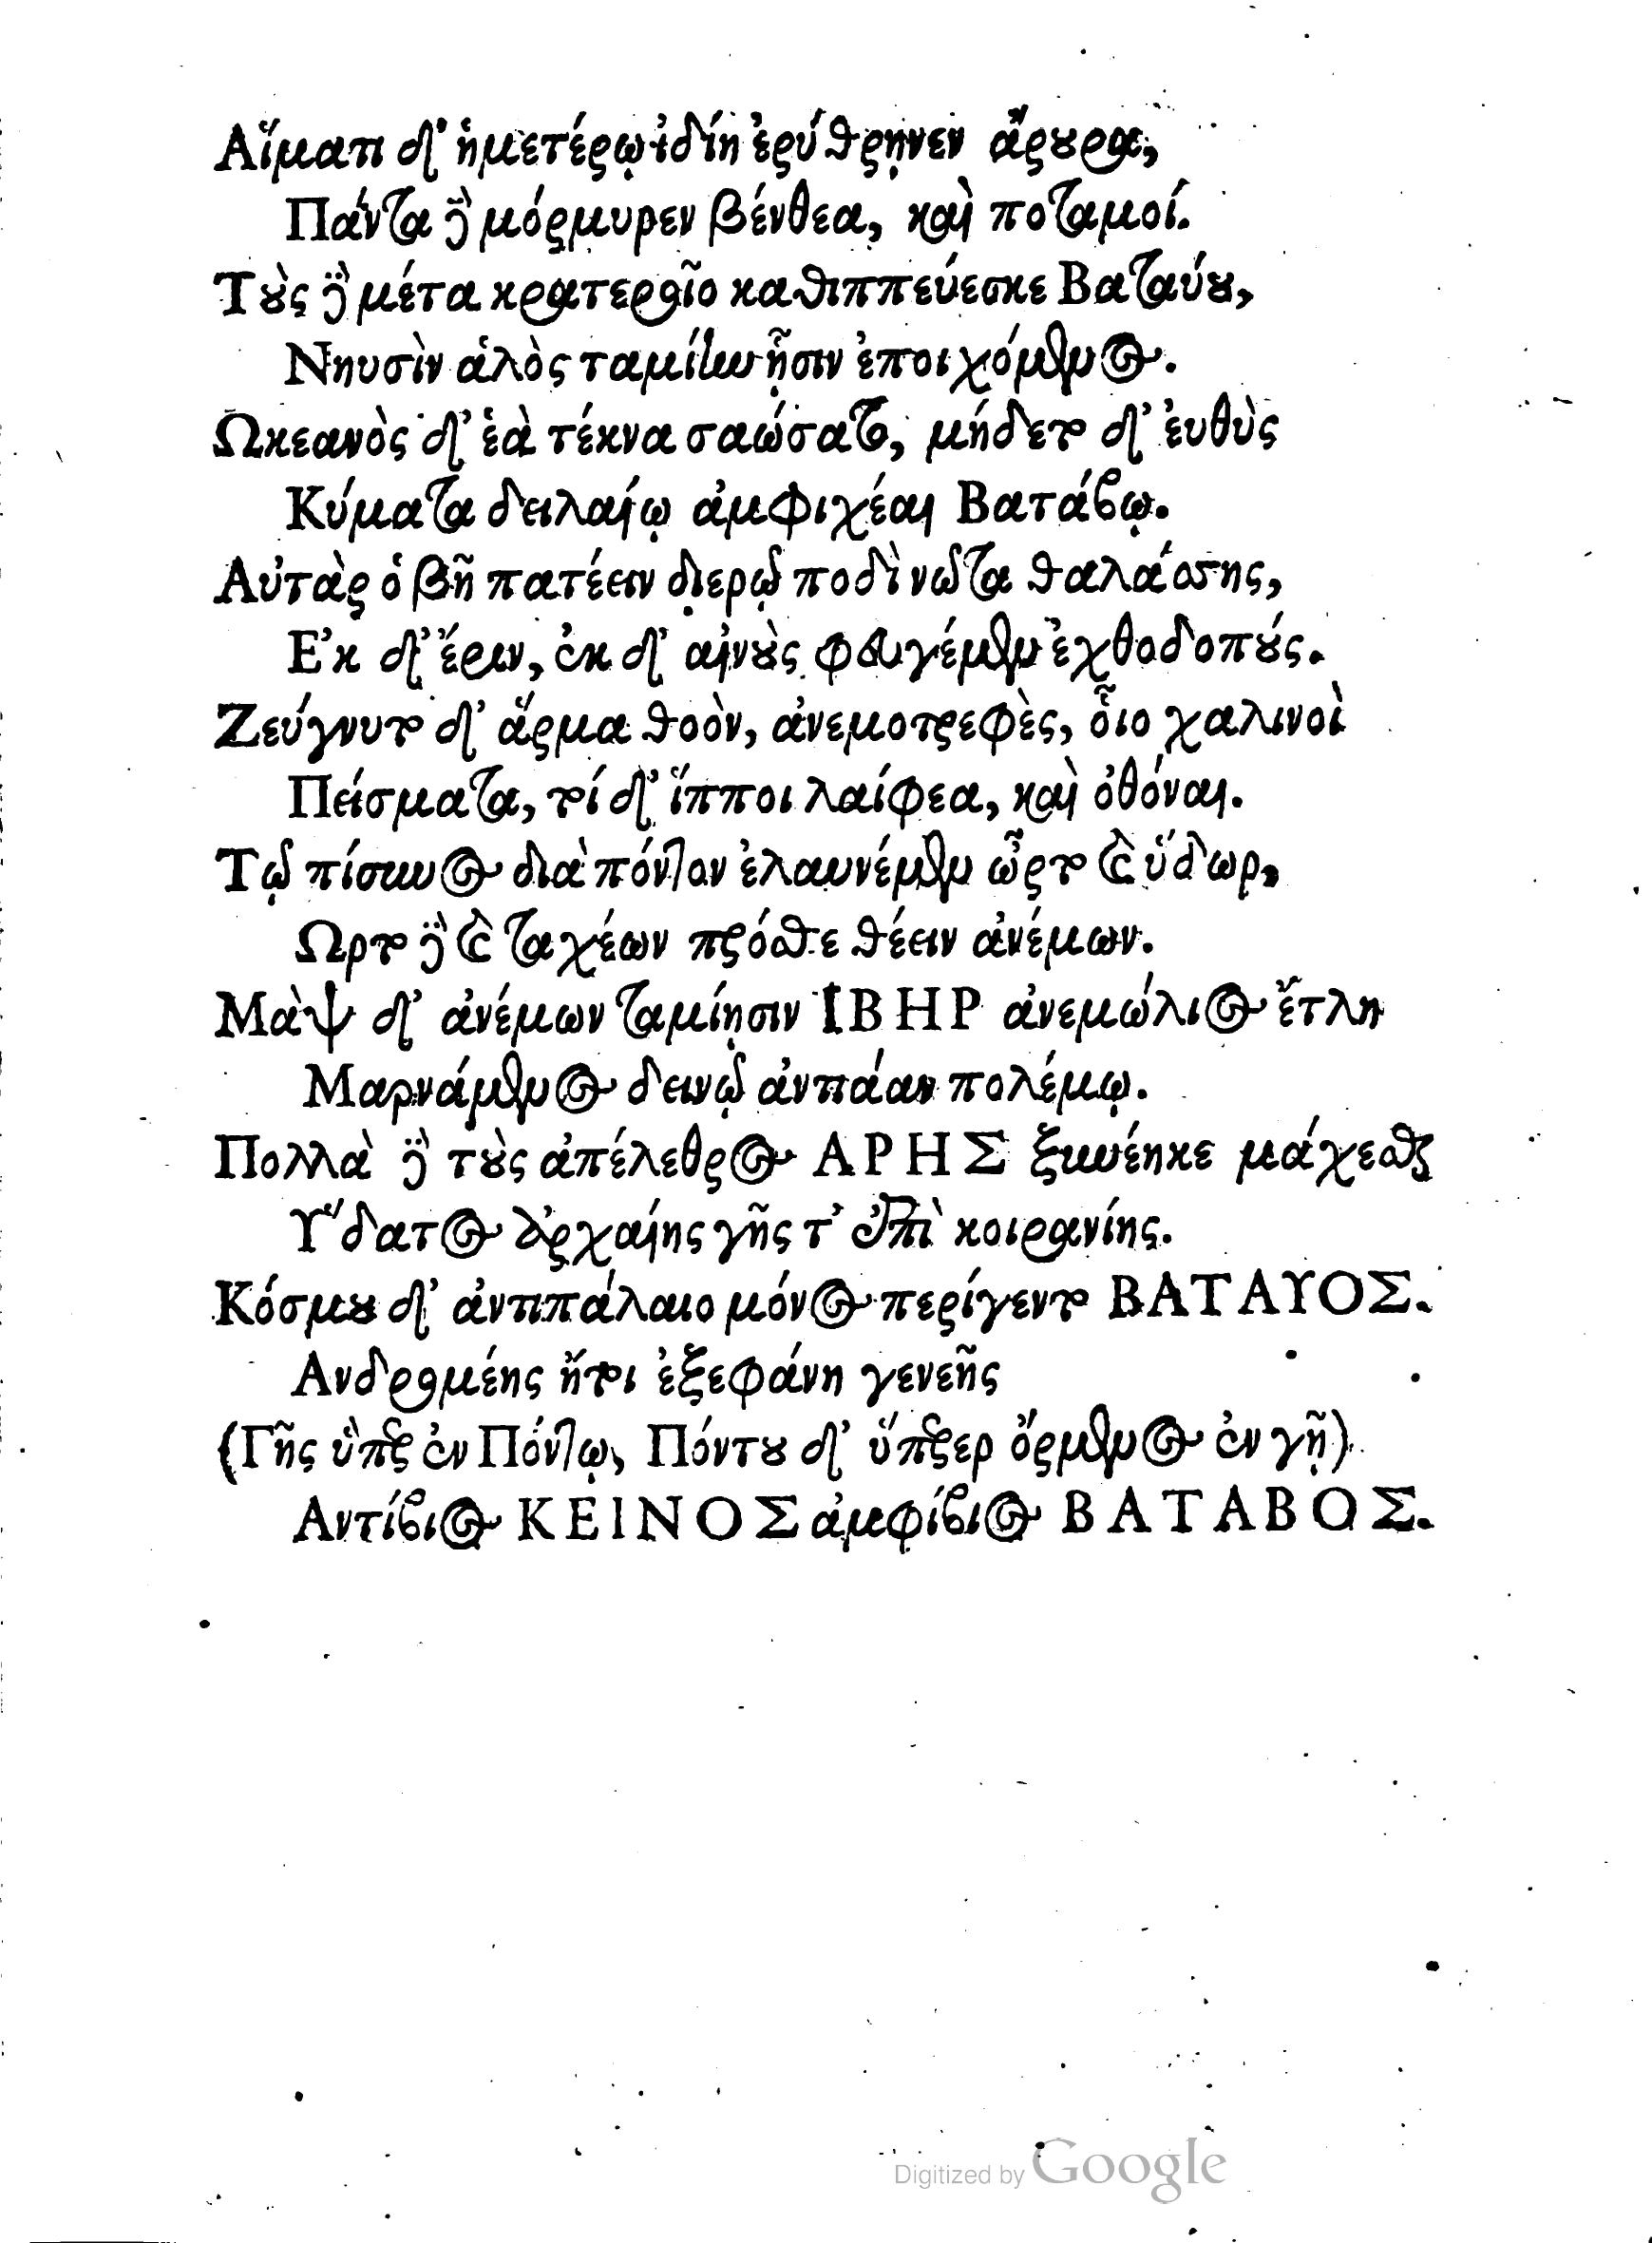 Αἵματι δ' ἡμετέρῳ ἰδίη ἐρύθρηνεν ἄρουρα,
Πάντα δὲ μόρμυρεν βένθεα, καὶ ποταμοί.
Τοὺς δὲ μέτα κρατεροῖο καθιππεύεσκε Βαταύου,
Νηυσὶν ἁλὸς ταμίην ᾗσιν ἐποιχόμενος.
Ωκεανὸς δ' ἑὰ τέκνα σαώσατο, μήδετο δ' ἐυθὺς
Κύματα δειλαίῳ ἀμφιχέαι Βατάβῳ.
Αὐτὰρ ὁ βῆ πατέειν διερῷ ποδὶ νῶτα θαλάσσης,
Ε'κ δ' ἔριν, ἐκ δ' αἰνοὺς φευγέμεν ἐχθοδοπούς.
Ζεύγνυτο δ' ἅρμα θοὸν, ἀνεμοτρεφὲς, ὗιο χαλινοὶ
Πείσματα, τοί δ' ἵπποι λαίφεα, καὶ ὀθόναι.
Τῷ πίσυνος διὰ πόντον ἐλαυνέμεν ὦρτο καὶ ὕδωρ,
Ωρτο δὲ καὶ ταχέων πρόσθε θέειν ἀνέμων.
Μὰψ δ' ἀνέμων ταμίησιν ΙΒΗΡ ἀνεμώλιος ἔτλη
Μαρνάμενος δεινῷ ἀντιάαν πολέμῳ.
Πολλὰ δὲ τοὺς ἀπέλεθρος ΑΡΗΣ ξυνέηκε μάχεσθαι
Υ῞δατος ἀρχαίης γῆς τ' ἐπὶ κοιρανίης.
Κόσμου δ' ἀντιπάλαιο μόνος περίγεντο ΒΑΤΑΥΟΣ.
Ανδρομένης ἤτοι ἐξεφάνη γενεῆς
(Γῆς ὓπερ ἐν Πόντῳ, Πόντου δ' ὕπερ ὄρμενος ἐν γῇ)
Αντίβιος ΚΕΙΝΟΣ ἀμφίβιος ΒΑΤΑΒΟΣ.
Digitized by Google